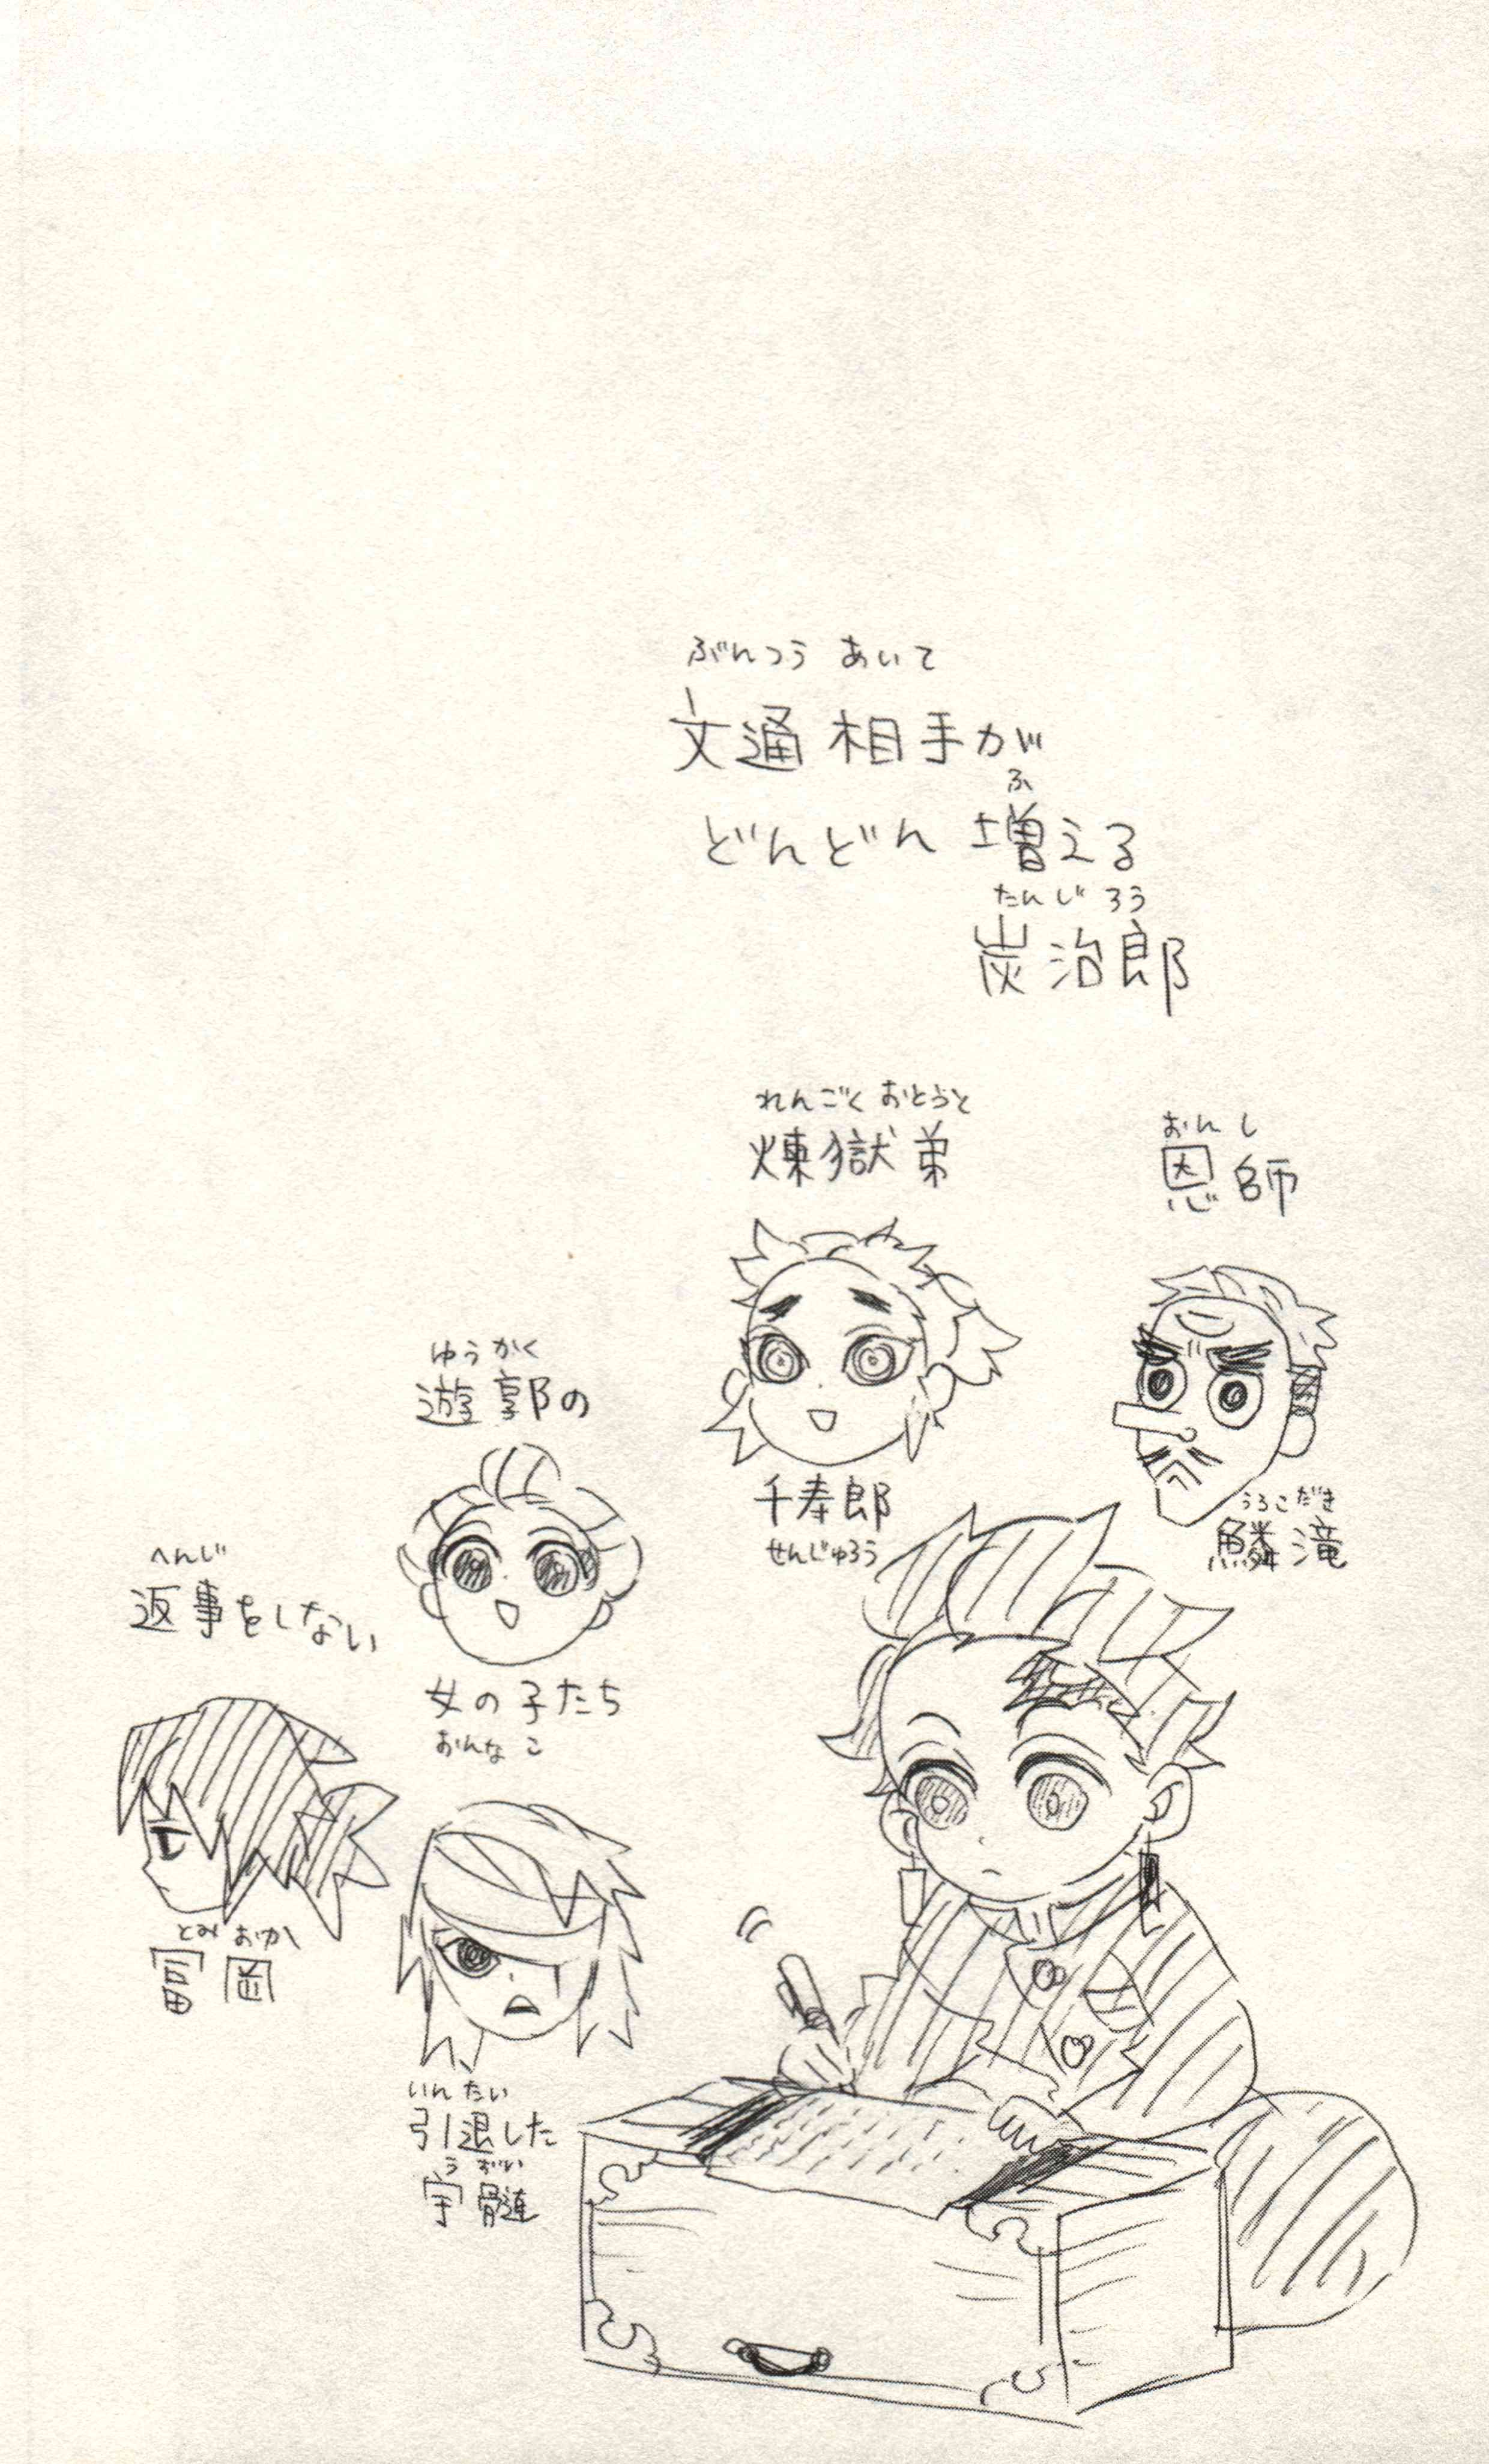 ぶんつう あいて
文通相手が
ふ
どんどん増える
たんじろう
炭治郎
おんし
恩師
うろこだき
鱗滝
れんごくおとうと
煉獄弟
千寿郎
せんじゅろう
ゆうかく
遊郭の
女の子たち
おんな こ
へんじ
返事をしない
とみおか
冨岡
いんたい
引退した
うずい
宇髄